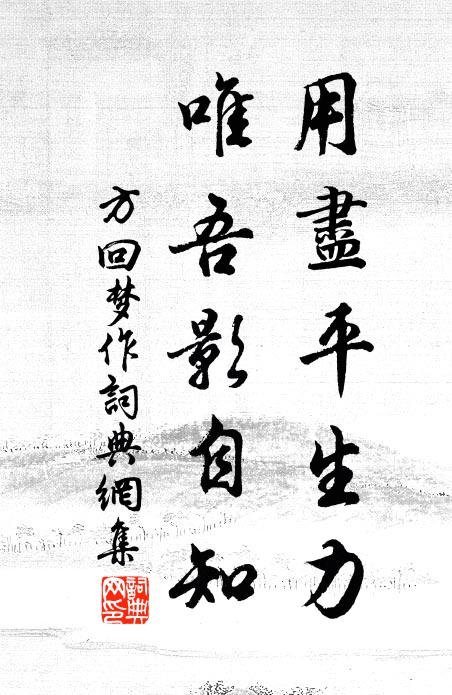 用盡平生力
唯吾影自知
方回梦作詞典網集
詞典网印